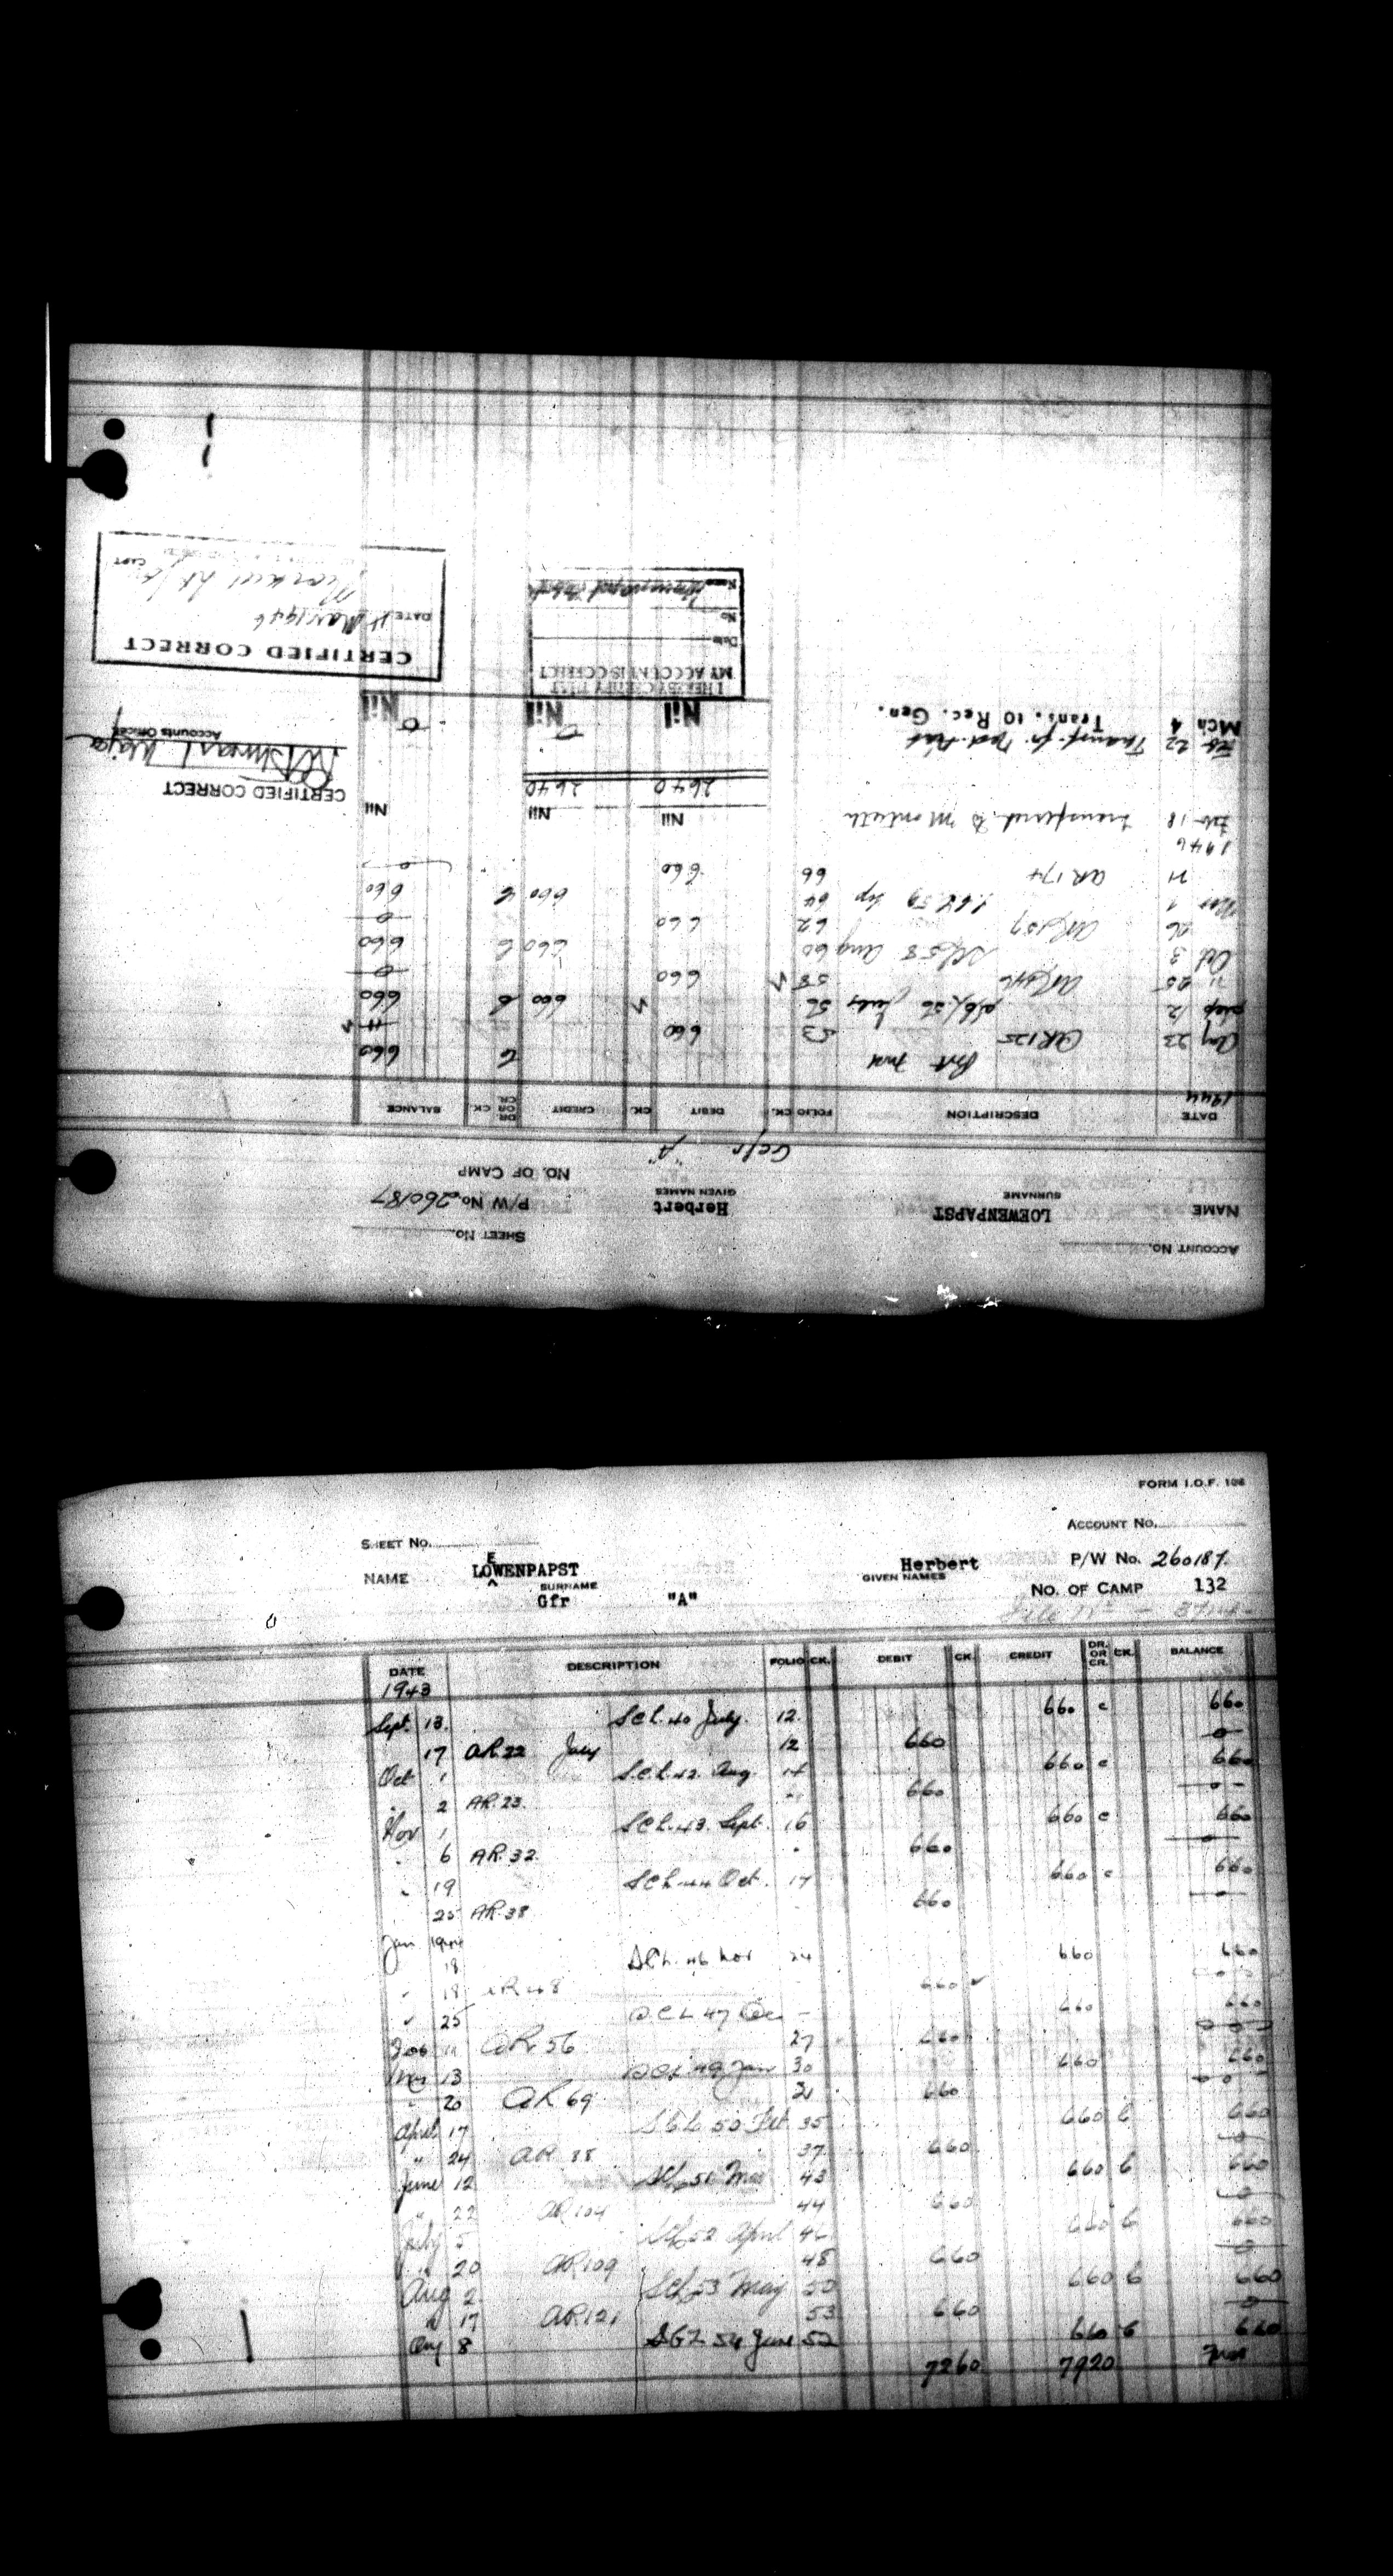 ACCOUNT No.
SHEET No.
NAME LOEWENPAPST Herbert P/W No. 260187
SURNAME GIVEN NAMES NO. OF CAMP
Gefr "A"
DATE DESCRIPTION FOLIO CK. DEBIT CK. CREDIT DR. OR CR. CK. BALANCE
1944
Brt fwd 660
Aug 23 AR125 53 660
Sep 12 56 July 56 660 660
" 25 58 660 0
Oct 3 58 Aug 60 660 660
26 AR159 62 660 0
Nov 1 59 Sep 64 660 660
21 AR 174 66 660 0
1946
Feb 18 transferred to Monteith Nil Nil Nil
2640 2640
CERTIFIED CORRECT
Accounts Officer
Feb 22 Transf. fr.
Mch 4 Trans. to Rec. Gen. Nil Nil Nil
I HEREBY CERTIFY THAT
MY ACCOUNT IS CORRECT
Date
No
Name
CERTIFIED CORRECT
DATE 4 Mar 1946
CAPT
FORM I.O.F. 106
SHEET No. ACCOUNT No.
NAME LOWENPAPST Herbert P/W No. 260187
E
SURNAME GIVEN NAMES
Gfr "A" NO. OF CAMP 132
DATE DESCRIPTION FOLIO CK. DEBIT CK. CREDIT DR. OR CR. CK. BALANCE
1943
Sept. 13. S.C.L. 40 July. 12. 660 c 660
17 A.R. 22 July 12 660 0
Oct 1 S.C.L. 42 Aug 14 660 c 660
" 2 A.R. 23. " 660 0
Nov 1 S.C.L. 43. Sept. 16 660 c 660
" 6 A.R. 32. " 660 0
" 19 S.C.L. 44 Oct. 17 660 c 660
25 A.R. 38 660 0
Jan 1944
18 S.C.L. 46 Nov 24 660 660
" 18 AR 48 660 0
" 25 S.C.L 47 Dec 660 660
Feb AR 56 27 660 0
Mar 13 S.C.L. 49 Jan 30 660 660
" 20 AR 69 31 660 0
April 17 S.C.L. 50 Feb 35 660 C 660
" 24 AR 88 37 660 0
June 12 SCL 51 Mar 43 660 C 660
" 22 AR 104 44 660 0
July 5 SCL 52 April 46 660 C 660
" 20 AR 109 48 660 0
Aug 2 SCL 53 May 50 660 C 660
" 17 AR 121 53 660 0
Aug 8 SCL 54 June 52 660 C 660
7260 7920